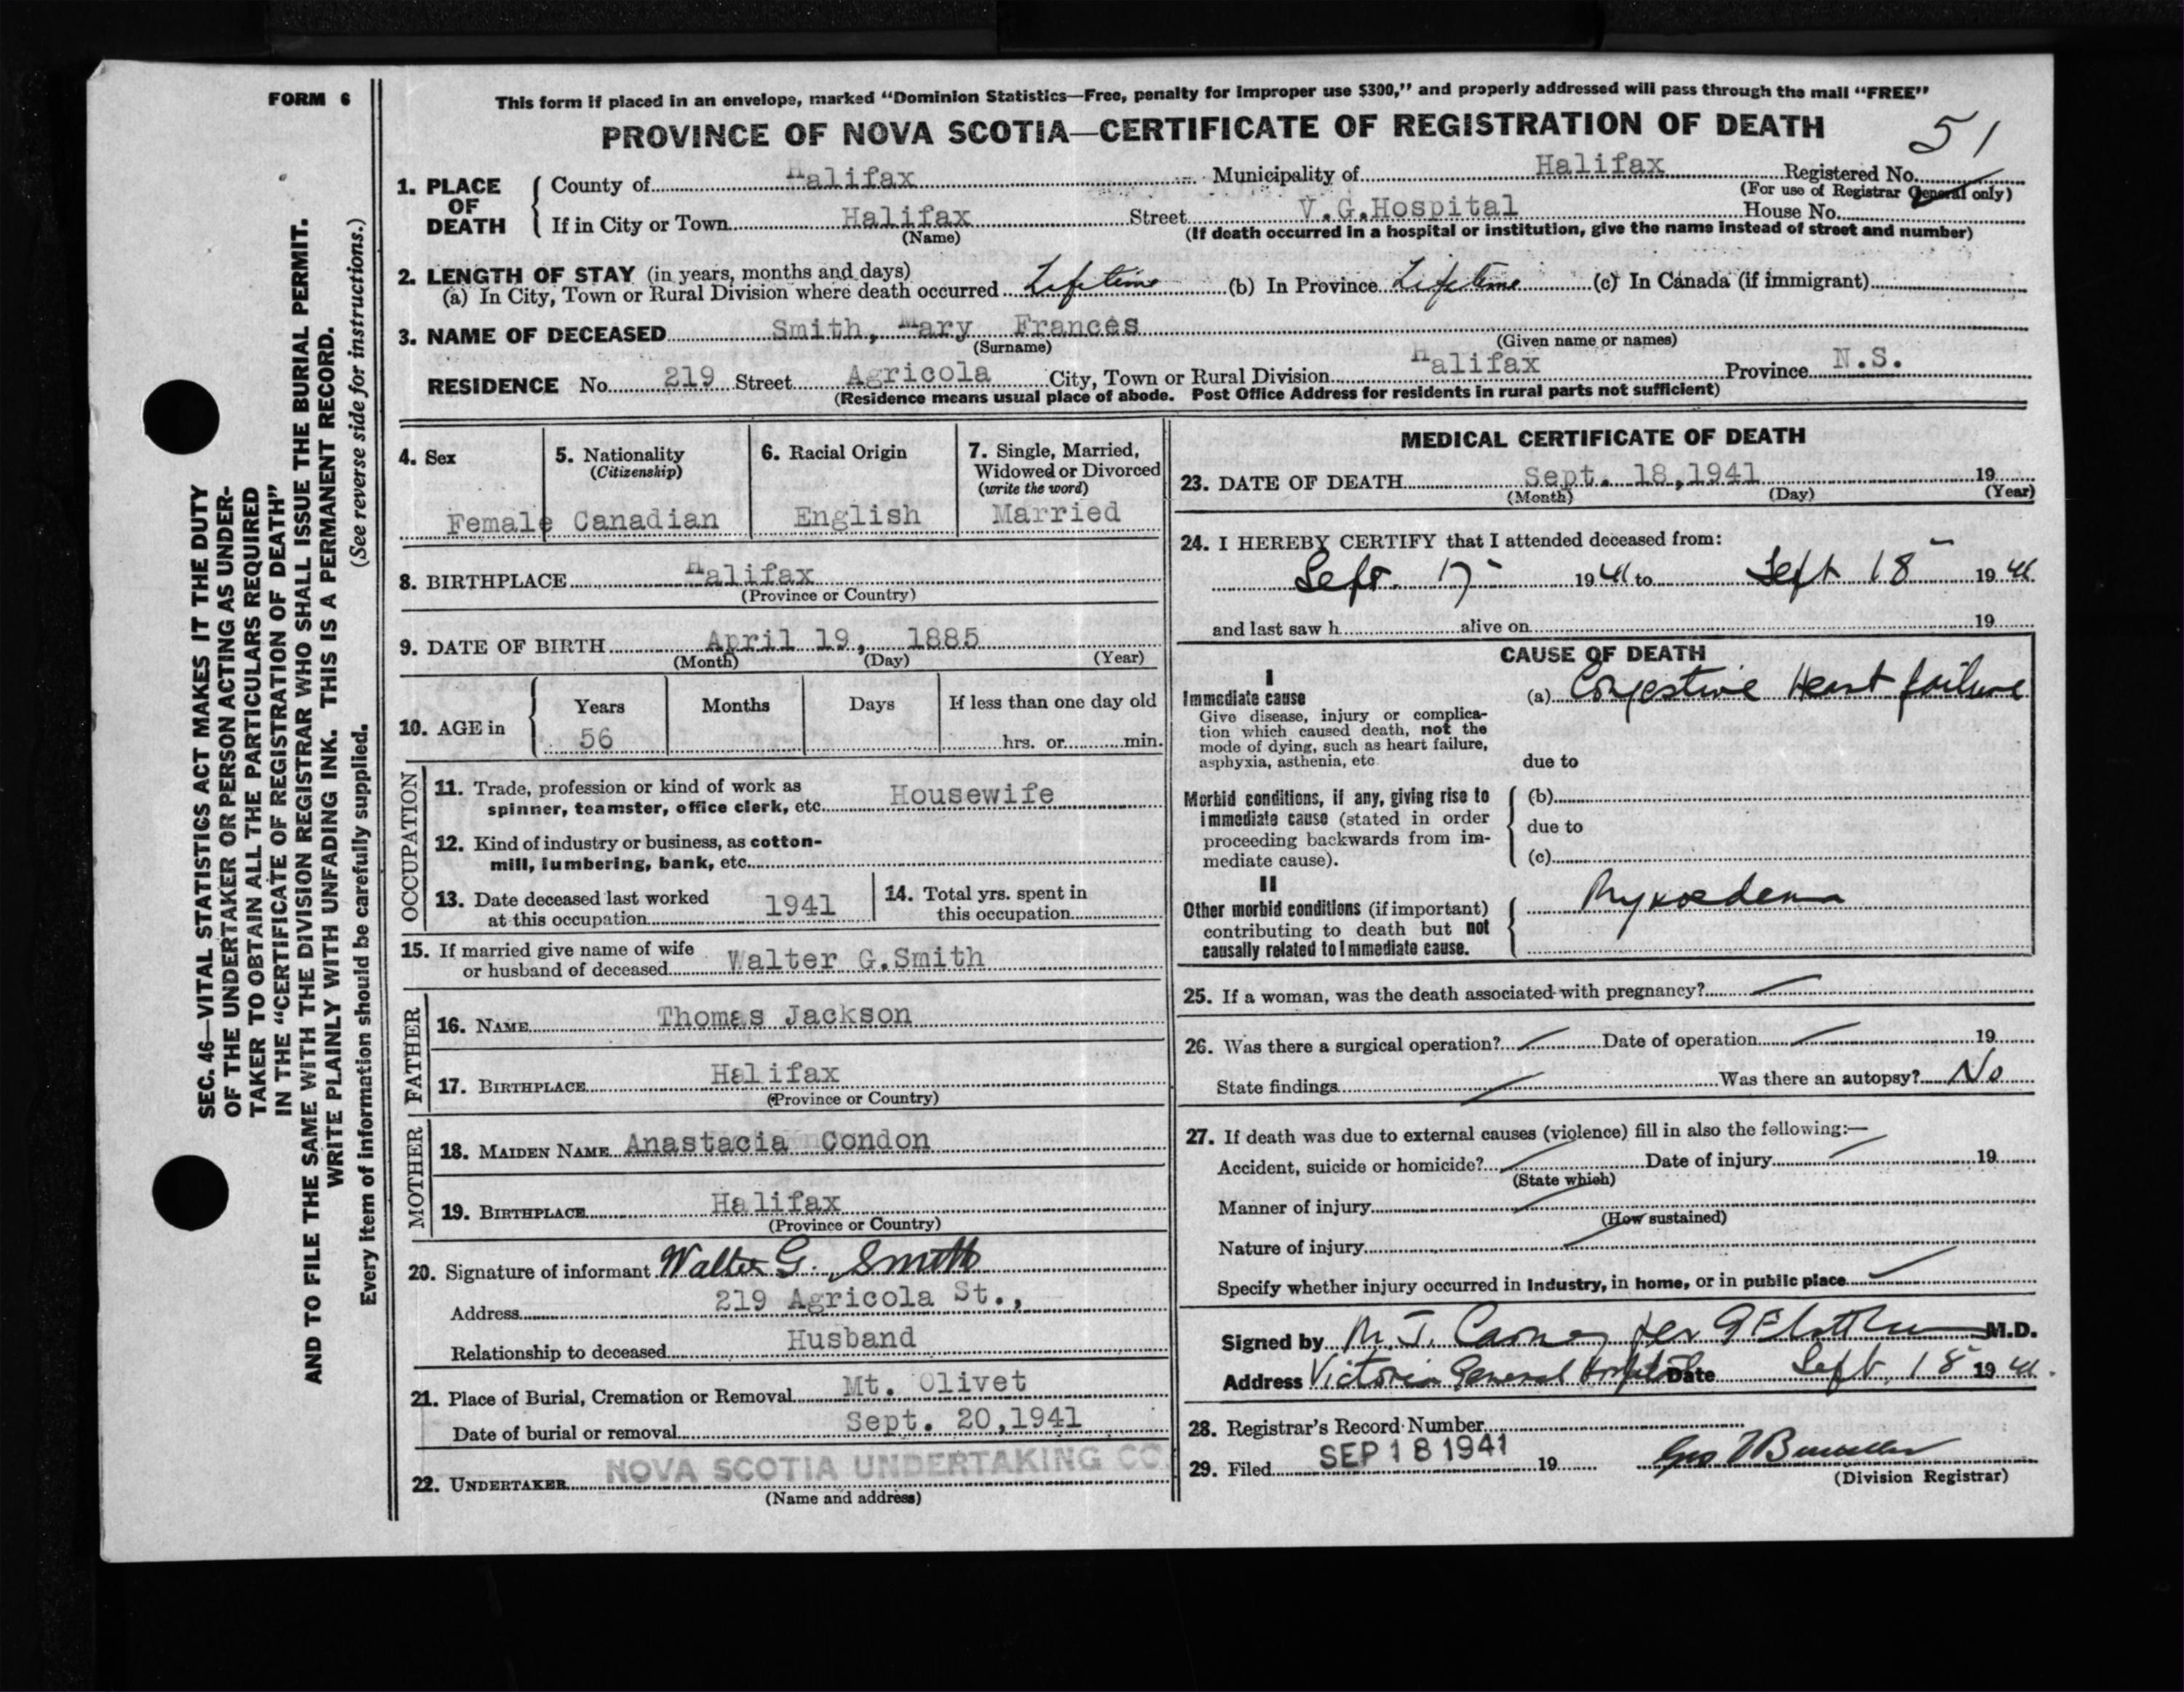 FORM 6
This form if placed in an envelope, marked “Dominion Statistics—Free, penalty for improper use $300,” and properly addressed will pass through the mail “FREE”
PROVINCE OF NOVA SCOTIA—CERTIFICATE OF REGISTRATION OF DEATH
51
1. PLACE OF DEATH
County of Halifax Municipality of Halifax Registered No.
(For use of Registrar General only)
If in City or Town Halifax Street V.G.Hospital House No.
(Name) (If death occurred in a hospital or institution, give the name instead of street and number)
2. LENGTH OF STAY (in years, months and days)
(a) In City, Town or Rural Division where death occurred Lifetime (b) In Province Lifetime (c) In Canada (if immigrant)
3. NAME OF DECEASED Smith, Mary Frances
(Surname) (Given name or names)
RESIDENCE No. 219 Street Agricola City, Town or Rural Division Halifax Province N.S.
(Residence means usual place of abode. Post Office Address for residents in rural parts not sufficient)
4. Sex
Female
5. Nationality
(Citizenship)
Canadian
6. Racial Origin
English
7. Single, Married,
Widowed or Divorced
(write the word)
Married
8. BIRTHPLACE Halifax
(Province or Country)
9. DATE OF BIRTH April 19, 1885
(Month) (Day) (Year)
10. AGE in
Years Months Days If less than one day old
56 hrs. or min.
OCCUPATION
11. Trade, profession or kind of work as
spinner, teamster, office clerk, etc. Housewife
12. Kind of industry or business, as cotton-
mill, lumbering, bank, etc.
13. Date deceased last worked
at this occupation 1941
14. Total yrs. spent in
this occupation
15. If married give name of wife
or husband of deceased Walter G.Smith
FATHER
16. NAME Thomas Jackson
17. BIRTHPLACE Halifax
(Province or Country)
MOTHER
18. MAIDEN NAME Anastacia Condon
19. BIRTHPLACE Halifax
(Province or Country)
20. Signature of informant Walter G. Smith
Address 219 Agricola St.,
Relationship to deceased Husband
21. Place of Burial, Cremation or Removal Mt. Olivet
Date of burial or removal Sept. 20,1941
22. UNDERTAKER NOVA SCOTIA UNDERTAKING CO
(Name and address)
MEDICAL CERTIFICATE OF DEATH
23. DATE OF DEATH Sept. 18,1941 19
(Month) (Day) (Year)
24. I HEREBY CERTIFY that I attended deceased from:
Sept. 17 1941 to Sept 18 1941
and last saw h alive on 19
CAUSE OF DEATH
I
Immediate cause
Give disease, injury or complica-
tion which caused death, not the
mode of dying, such as heart failure,
asphyxia, asthenia, etc.
(a) Congestive Heart failure
due to
Morbid conditions, if any, giving rise to
immediate cause (stated in order
proceeding backwards from im-
mediate cause).
(b)
due to
(c)
II
Other morbid conditions (if important)
contributing to death but not
causally related to immediate cause.
Myxoedema
25. If a woman, was the death associated with pregnancy?
26. Was there a surgical operation? Date of operation 19
State findings Was there an autopsy? No
27. If death was due to external causes (violence) fill in also the following:—
Accident, suicide or homicide? Date of injury 19
(State which)
Manner of injury
(How sustained)
Nature of injury
Specify whether injury occurred in industry, in home, or in public place
Signed by M. J. per M.D.
Address Victoria General Hospital Date Sept. 18 1941
28. Registrar's Record Number
29. Filed SEP 18 1941 19
(Division Registrar)
SEC. 46—VITAL STATISTICS ACT MAKES IT THE DUTY
OF THE UNDERTAKER OR PERSON ACTING AS UNDER-
TAKER TO OBTAIN ALL THE PARTICULARS REQUIRED
IN THE “CERTIFICATE OF REGISTRATION OF DEATH”
AND TO FILE THE SAME WITH THE DIVISION REGISTRAR WHO SHALL ISSUE THE BURIAL PERMIT.
WRITE PLAINLY WITH UNFADING INK. THIS IS A PERMANENT RECORD.
Every item of information should be carefully supplied. (See reverse side for instructions.)